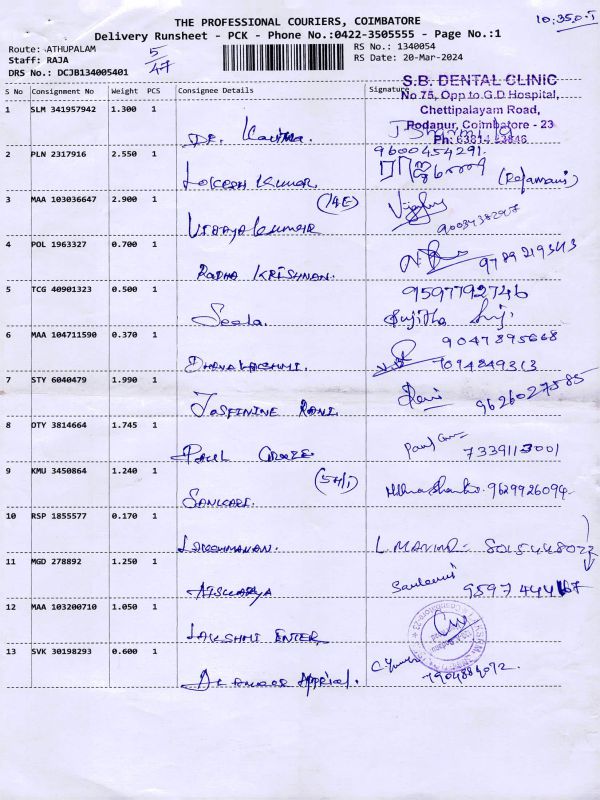 THE PROFESSIONAL COURIERS, COIMBATORE
10.35
Delivery Runsheet - PCK - Phone No.:0422-3505555 - Page No.:1
Route: ATHUPALAM
Staff: RAJA
DRS No.: DCJB134005401
5/47
RS No.: 1340054
RS Date: 20-Mar-2024
S No Consignment No Weight PCS Consignee Details Signature
S.B. DENTAL CLINIC
No 75, Opp to G.D Hospital,
Chettipalayam Road,
Podanur, Coimbatore - 23
Ph: 63814
1 SLM 341957942 1.300 1 Dr. Kavitha.
2 PLN 2317916 2.550 1 Lokesh Kumar 9600454291 (Rajamani)
3 MAA 103036647 2.900 1 Vijayakumar (14E)
4 POL 1963327 0.700 1 Radha Krishnan.
5 TCG 40901323 0.500 1 Seela. 9597792746 Sujitha
6 MAA 104711590 0.370 1 Dhanalakshmi. 9047895668 7094849313
7 STY 6040479 1.990 1 Rani. 9626027585
8 OTY 3814664 1.745 1 Paul 7339113001
9 KMU 3450864 1.240 1 Sankari. (54/1) 9629926094
10 RSP 1855577 0.170 1 Lakshmanan.
11 MGD 278892 1.250 1 Aiswarya
12 MAA 103200710 1.050 1 Lakshmi Enter
13 SVK 30198293 0.600 1